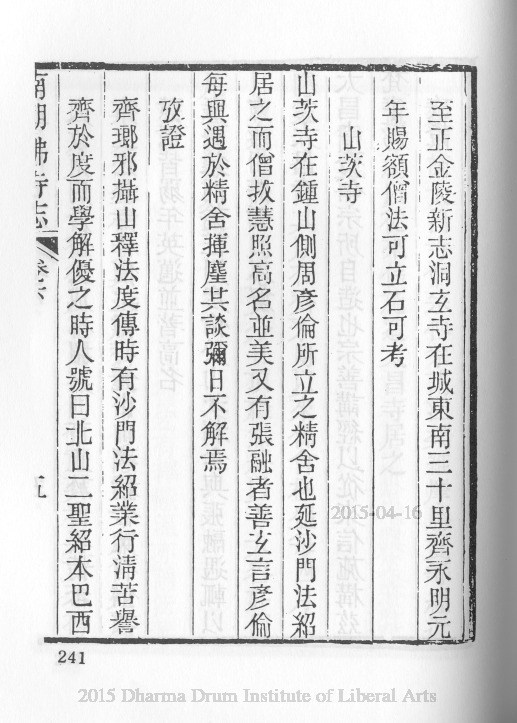 至正金陵新志洞玄寺在城東南三十里齊永明元
年賜額僧法可立石可考
山茨寺
山茨寺在鍾山側周彥倫所立之精舍也延沙門法紹
居之而僧拔慧照高名並美又有張融者善玄言彥倫
每興遇於精舍揮麈共談彌日不解焉
攷證
齊瑯邪攝山釋法度傳時有沙門法紹業行淸苦譽
齊於度而學解優之時人號曰北山二聖紹本巴西
南朝佛寺志
卷六
五
241
2015-04-16
2015 Dharma Drum Institute of Liberal Arts